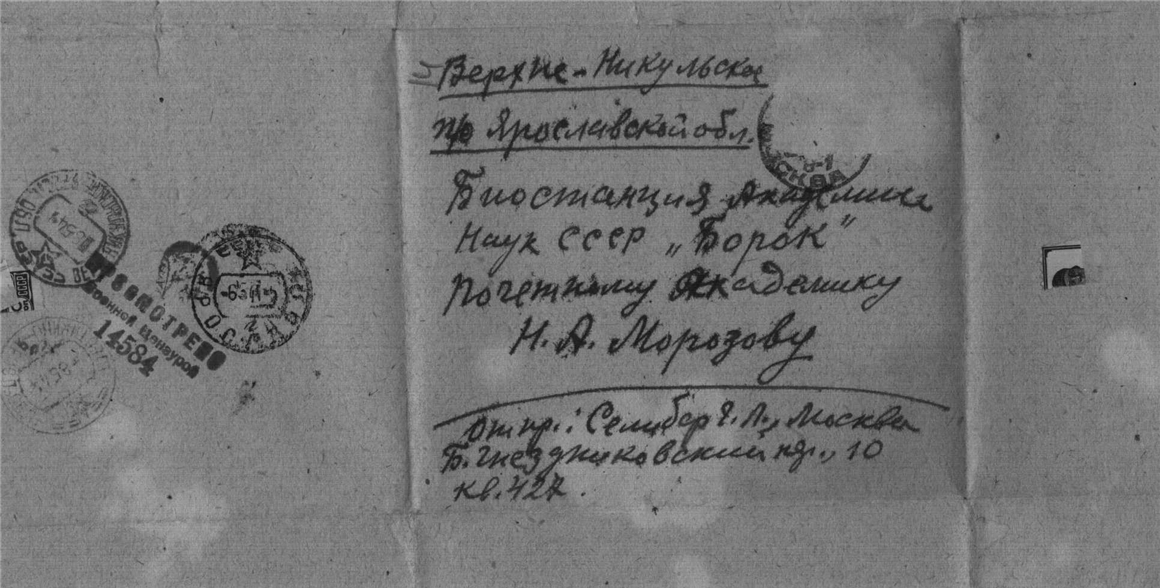 Верхне-Никульское
п/о Ярославской обл.
Биостанция Академии
Наук СССР „Борок"
Почетному Академику
Н. А. Морозову
отпр.: Москва
Б. Гнездниковский пер., 10
кв. 427.
ПРОСМОТРЕНО
Военной Цензурой
14584
МОСКВА
СССР